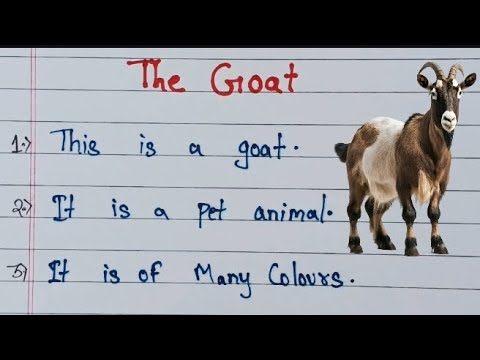 The Goat
1.) This is a goat.
2.) It is a pet animal.
3.) It is of Many Colours.